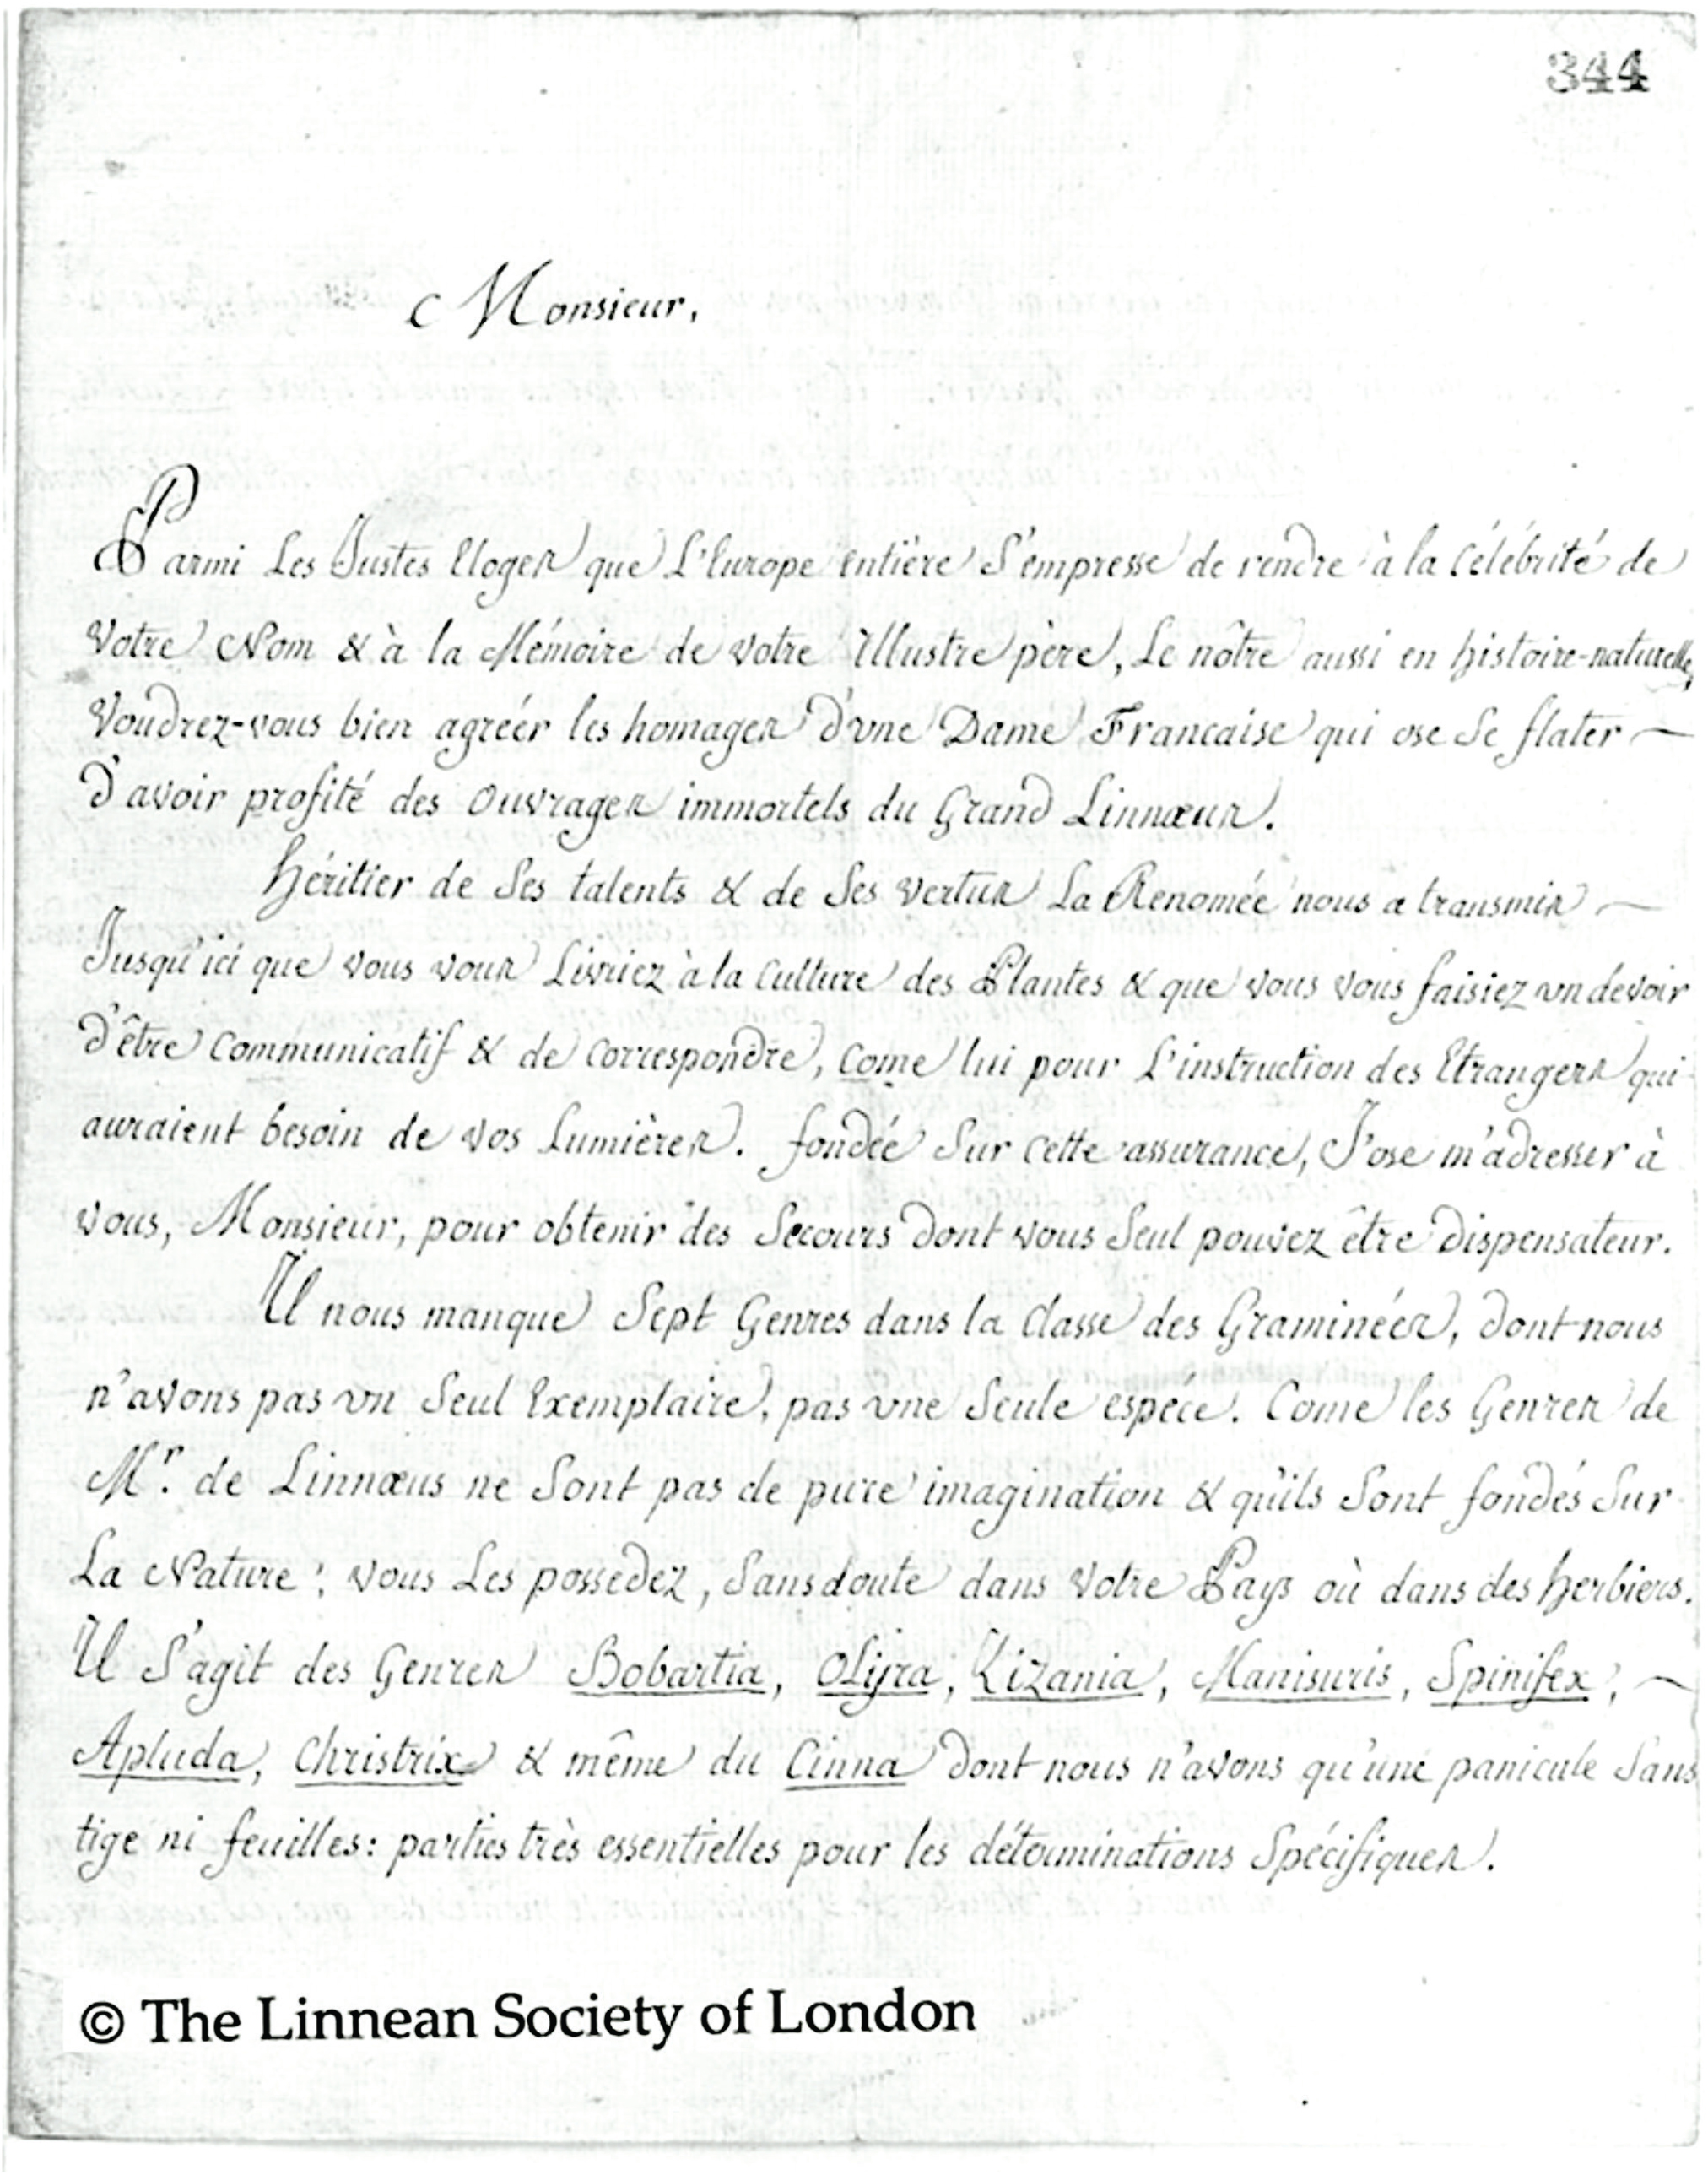 344
Monsieur,
Parmi Les Justes Eloges que L'Europe entière S'empresse de rendre à la Célébrité de
Votre Nom & à la Mémoire de Votre Illustre père, Le nôtre aussi en histoire-naturelle,
Voudrez-vous bien agréér les homages d'vne Dame Francaise qui ose Se flater ~
d'avoir profité des Ouvrages immortels du Grand Linnæus.
Héritier de Ses talents & de Ses Vertus La Renomée nous a transmis ~
Jusqu'ici que vous vous Livriez à la Culture des Plantes & que vous vous faisiez vn devoir
d'être Communicatif & de Correspondre, Come lui pour L'instruction des Etrangers qui
auraient besoin de vos Lumières. fondée Sur Cette assurance, J'ose m'adresser à
vous, Monsieur, pour obtenir des Secours dont vous Seul pouvez être dispensateur.
Il nous manque Sept Genres dans la Classe des Graminéés, dont nous
n'avons pas vn Seul Exemplaire, pas vne Seule espéce. Come les Genres de
Mr. de Linnæus ne Sont pas de pure imagination & qu'ils Sont fondés Sur
La Nature; vous Les possedez, Sans doute dans Votre Pays où dans des herbiers.
Il S'agit des Genres Bobartia, Olyra, Zizania, Manisuris, Spinifex, ~
Apluda, Christrix & même du Cinna dont nous n'avons qu'une panicule Sans
tige ni feuilles: parties très essentielles pour les déterminations Spécifiques.
© The Linnean Society of London